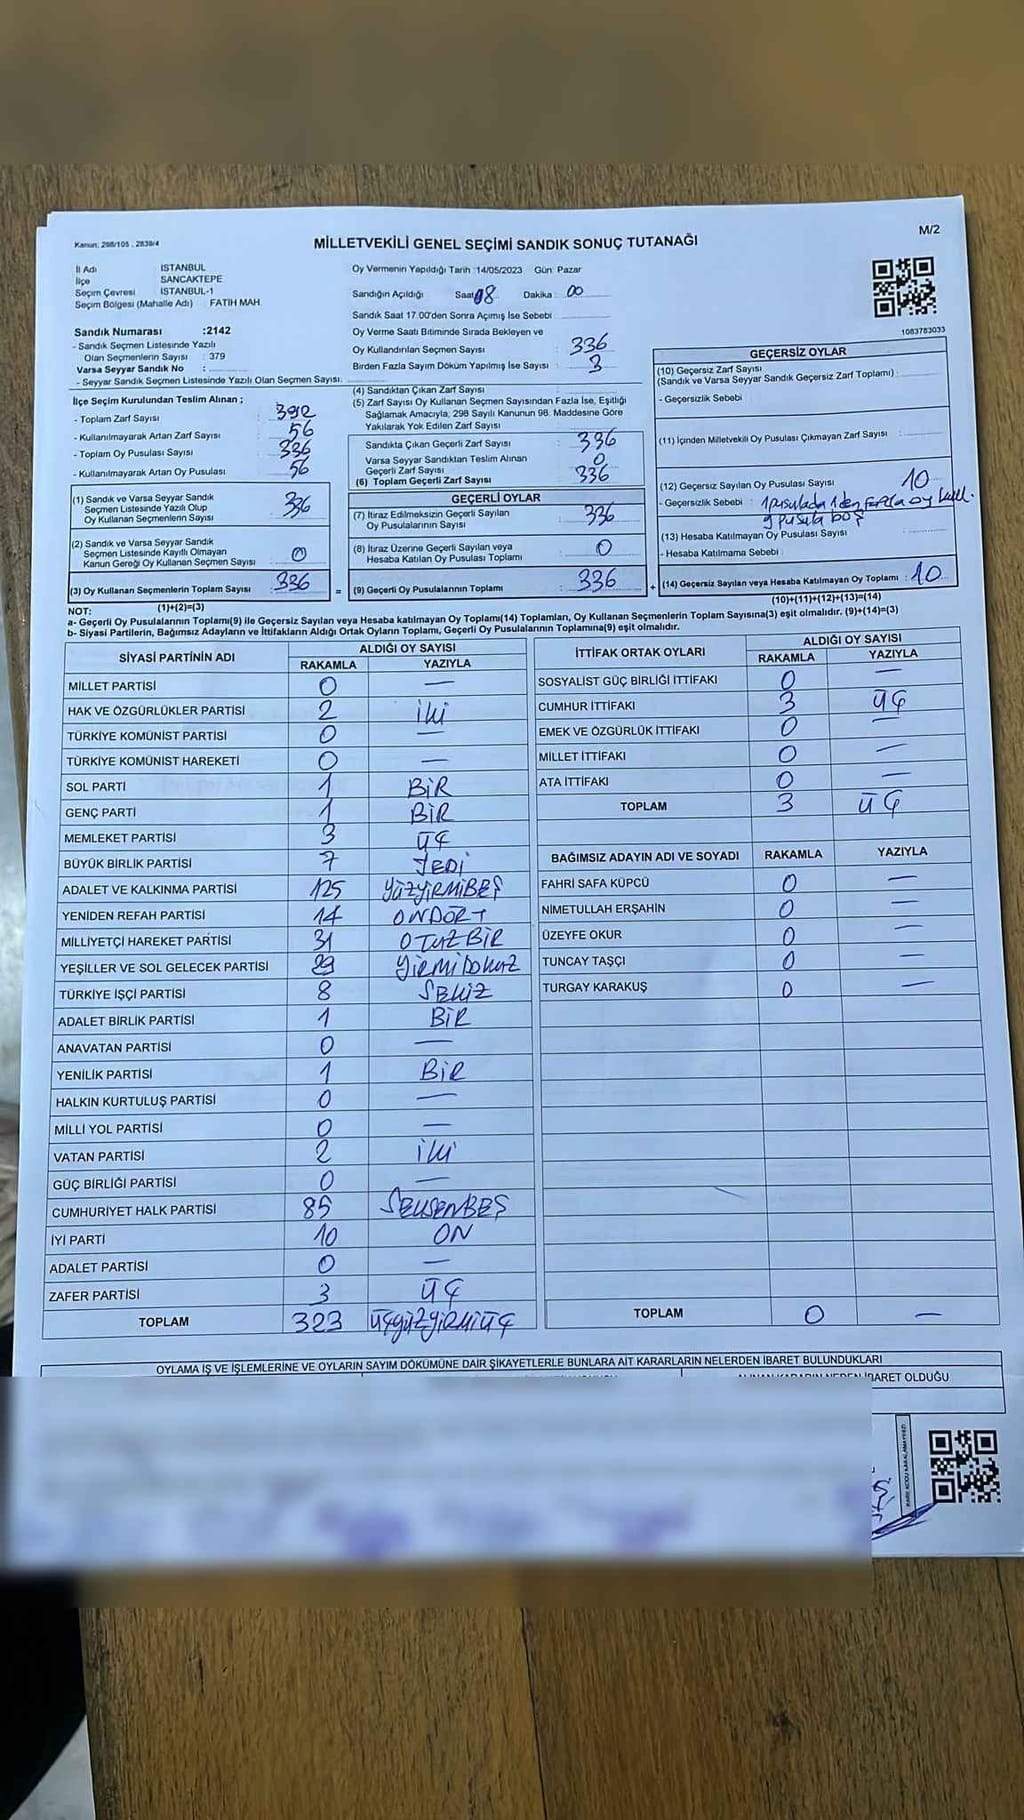 M/2
Kanun: 298/105 , 2839/4
MİLLETVEKİLİ GENEL SEÇİMİ SANDIK SONUÇ TUTANAĞI
İl Adı İSTANBUL
İlçe SANCAKTEPE
Seçim Çevresi İSTANBUL-1
Seçim Bölgesi (Mahalle Adı) : FATİH MAH.
Sandık Numarası :2142
- Sandık Seçmen Listesinde Yazılı
Olan Seçmenlerin Sayısı : 379
Varsa Seyyar Sandık No :
- Seyyar Sandık Seçmen Listesinde Yazılı Olan Seçmen Sayısı:
Oy Vermenin Yapıldığı Tarih :14/05/2023 Gün: Pazar
Sandığın Açıldığı Saat 08 Dakika : 00
Sandık Saat 17.00'den Sonra Açımış İse Sebebi :
Oy Verme Saati Bitiminde Sırada Bekleyen ve
Oy Kullandırılan Seçmen Sayısı : 336
Birden Fazla Sayım Döküm Yapılmış İse Sayısı : 3
1083783033
İlçe Seçim Kurulundan Teslim Alınan ;
- Toplam Zarf Sayısı : 392
- Kullanılmayarak Artan Zarf Sayısı : 56
- Toplam Oy Pusulası Sayısı : 336
- Kullanılmayarak Artan Oy Pusulası : 56
(1) Sandık ve Varsa Seyyar Sandık
Seçmen Listesinde Yazılı Olup
Oy Kullanan Seçmenlerin Sayısı : 336
(2) Sandık ve Varsa Seyyar Sandık
Seçmen Listesinde Kayıtlı Olmayan
Kanun Gereği Oy Kullanan Seçmen Sayısı : 0
(3) Oy Kullanan Seçmenlerin Toplam Sayısı : 336
(1)+(2)=(3)
(4) Sandıktan Çıkan Zarf Sayısı :
(5) Zarf Sayısı Oy Kullanan Seçmen Sayısından Fazla İse, Eşitliği
Sağlamak Amacıyla, 298 Sayılı Kanunun 98. Maddesine Göre
Yakılarak Yok Edilen Zarf Sayısı :
Sandıkta Çıkan Geçerli Zarf Sayısı : 336
Varsa Seyyar Sandıktan Teslim Alınan
Geçerli Zarf Sayısı : 0
(6) Toplam Geçerli Zarf Sayısı : 336
GEÇERLİ OYLAR
(7) İtiraz Edilmeksizin Geçerli Sayılan
Oy Pusulalarının Sayısı : 336
(8) İtiraz Üzerine Geçerli Sayılan veya
Hesaba Katılan Oy Pusulası Toplamı : 0
= (9) Geçerli Oy Pusulalarının Toplamı : 336 +
GEÇERSİZ OYLAR
(10) Geçersiz Zarf Sayısı
(Sandık ve Varsa Seyyar Sandık Geçersiz Zarf Toplamı) :
- Geçersizlik Sebebi :
(11) İçinden Milletvekili Oy Pusulası Çıkmayan Zarf Sayısı :
(12) Geçersiz Sayılan Oy Pusulası Sayısı : 10
- Geçersizlik Sebebi : 1 pusulada 1 den fazla oy kull.
9 pusula boş
(13) Hesaba Katılmayan Oy Pusulası Sayısı :
- Hesaba Katılmama Sebebi :
(14) Geçersiz Sayılan veya Hesaba Katılmayan Oy Toplamı : 10
(10)+(11)+(12)+(13)=(14)
NOT:
a- Geçerli Oy Pusulalarının Toplamı(9) ile Geçersiz Sayılan veya Hesaba katılmayan Oy Toplamı(14) Toplamları, Oy Kullanan Seçmenlerin Toplam Sayısına(3) eşit olmalıdır. (9)+(14)=(3)
b- Siyasi Partilerin, Bağımsız Adayların ve İttifakların Aldığı Ortak Oyların Toplamı, Geçerli Oy Pusulalarının Toplamına(9) eşit olmalıdır.
SİYASİ PARTİNİN ADI ALDIĞI OY SAYISI
RAKAMLA YAZIYLA
MİLLET PARTİSİ 0 —
HAK VE ÖZGÜRLÜKLER PARTİSİ 2 İKİ
TÜRKİYE KOMÜNİST PARTİSİ 0 —
TÜRKİYE KOMÜNİST HAREKETİ 0 —
SOL PARTİ 1 BİR
GENÇ PARTİ 1 BİR
MEMLEKET PARTİSİ 3 ÜÇ
BÜYÜK BİRLİK PARTİSİ 7 YEDİ
ADALET VE KALKINMA PARTİSİ 125 YÜZYİRMİBEŞ
YENİDEN REFAH PARTİSİ 14 ONDÖRT
MİLLİYETÇİ HAREKET PARTİSİ 31 OTUZBİR
YEŞİLLER VE SOL GELECEK PARTİSİ 29 YİRMİDOKUZ
TÜRKİYE İŞÇİ PARTİSİ 8 SEKİZ
ADALET BİRLİK PARTİSİ 1 BİR
ANAVATAN PARTİSİ 0 —
YENİLİK PARTİSİ 1 BİR
HALKIN KURTULUŞ PARTİSİ 0 —
MİLLİ YOL PARTİSİ 0 —
VATAN PARTİSİ 2 İKİ
GÜÇ BİRLİĞİ PARTİSİ 0 —
CUMHURİYET HALK PARTİSİ 85 SEKSENBEŞ
İYİ PARTİ 10 ON
ADALET PARTİSİ 0 —
ZAFER PARTİSİ 3 ÜÇ
TOPLAM 323 ÜÇYÜZYİRMİÜÇ
İTTİFAK ORTAK OYLARI ALDIĞI OY SAYISI
RAKAMLA YAZIYLA
SOSYALİST GÜÇ BİRLİĞİ İTTİFAKI 0 —
CUMHUR İTTİFAKI 3 ÜÇ
EMEK VE ÖZGÜRLÜK İTTİFAKI 0 —
MİLLET İTTİFAKI 0 —
ATA İTTİFAKI 0 —
TOPLAM 3 ÜÇ
BAĞIMSIZ ADAYIN ADI VE SOYADI RAKAMLA YAZIYLA
FAHRİ SAFA KÜPCÜ 0 —
NİMETULLAH ERŞAHİN 0 —
ÜZEYFE OKUR 0 —
TUNCAY TAŞÇI 0 —
TURGAY KARAKUŞ 0 —
TOPLAM 0 —
OYLAMA İŞ VE İŞLEMLERİNE VE OYLARIN SAYIM DÖKÜMÜNE DAİR ŞİKAYETLERLE BUNLARA AİT KARARLARIN NELERDEN İBARET BULUNDUKLARI
İBARET OLDUĞU